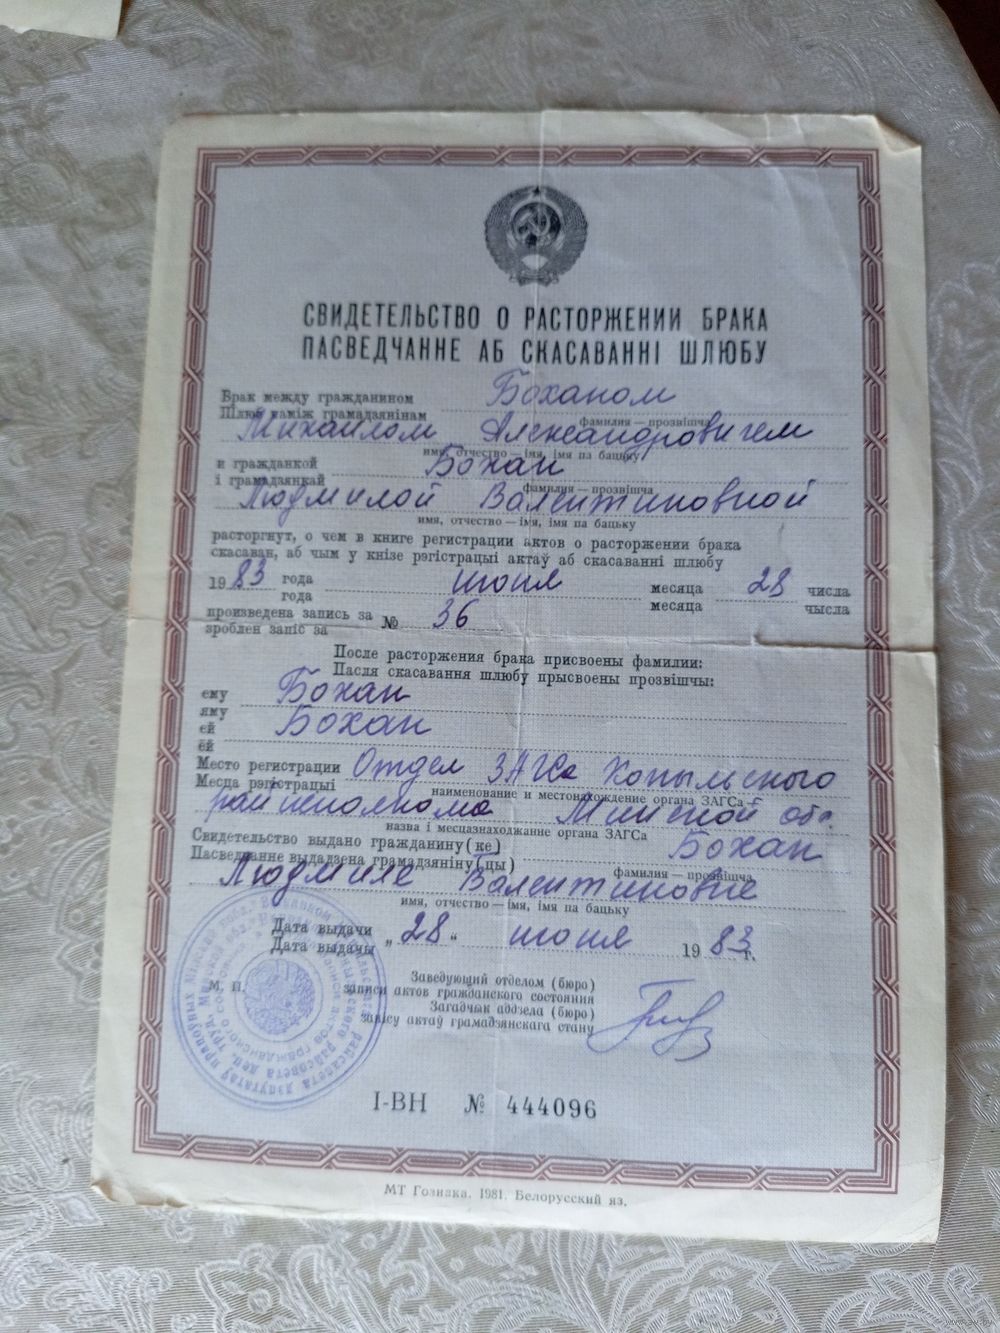 СВИДЕТЕЛЬСТВО О РАСТОРЖЕНИИ БРАКА
ПАСВЕДЧАННЕ АБ СКАСАВАННІ ШЛЮБУ
Брак между гражданином Боханом
Шлюб паміж грамадзянінам
фамилия — прозвішча
Михаилом Александровичем
имя, отчество — імя, імя па бацьку
и гражданкой Бохан
і грамадзянкай
фамилия — прозвішча
Людмилой Валентиновной
имя, отчество — імя, імя па бацьку
расторгнут, о чем в книге регистрации актов о расторжении брака
скасаван, аб чым у кнізе рэгістрацыі актаў аб скасаванні шлюбу
1983 года июня месяца 28 числа
года месяца чысла
произведена запись за № 36
зроблен запіс за
После расторжения брака присвоены фамилии:
Пасля скасавання шлюбу прысвоены прозвішчы:
ему Бохан
яму
ей Бохан
ёй
Место регистрации Отдел ЗАГСа Копыльского
Месца рэгістрацыі
наименование и местонахождение органа ЗАГСа
райисполкома Минской обл.
назва і месцазнаходжанне органа ЗАГСа
Свидетельство выдано гражданину(ке) Бохан
Пасведчанне выдадзена грамадзяніну(цы)
фамилия — прозвішча
Людмиле Валентиновне
имя, отчество — імя, імя па бацьку
Дата выдачи „28“ июня 1983 г.
Дата выдачы
Заведующий отделом (бюро)
М. П. записи актов гражданского состояния
Загадчык аддзела (бюро)
запісу актаў грамадзянскага стану
I-ВН № 444096
МТ Гознака. 1981. Белорусский яз.